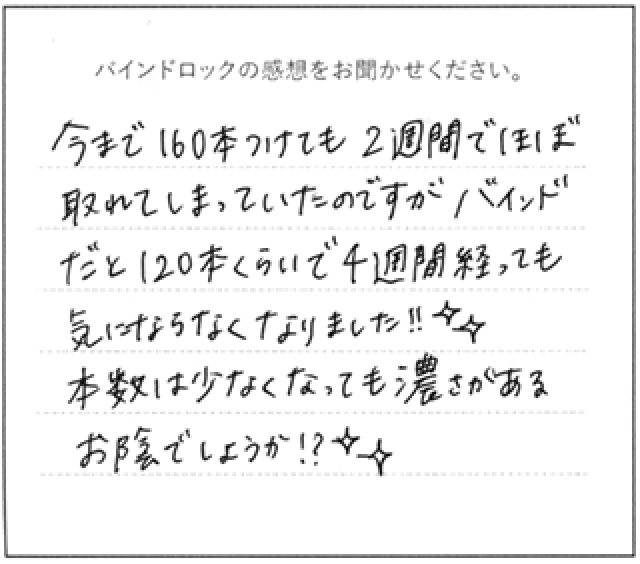 バインドロックの感想をお聞かせください。
今まで160本つけても2週間でほぼ
取れてしまっていたのですがバインド
だと120本くらいで4週間経っても
気にならなくなりました!!
本数は少なくなっても濃さがある
お陰でしょうか!?